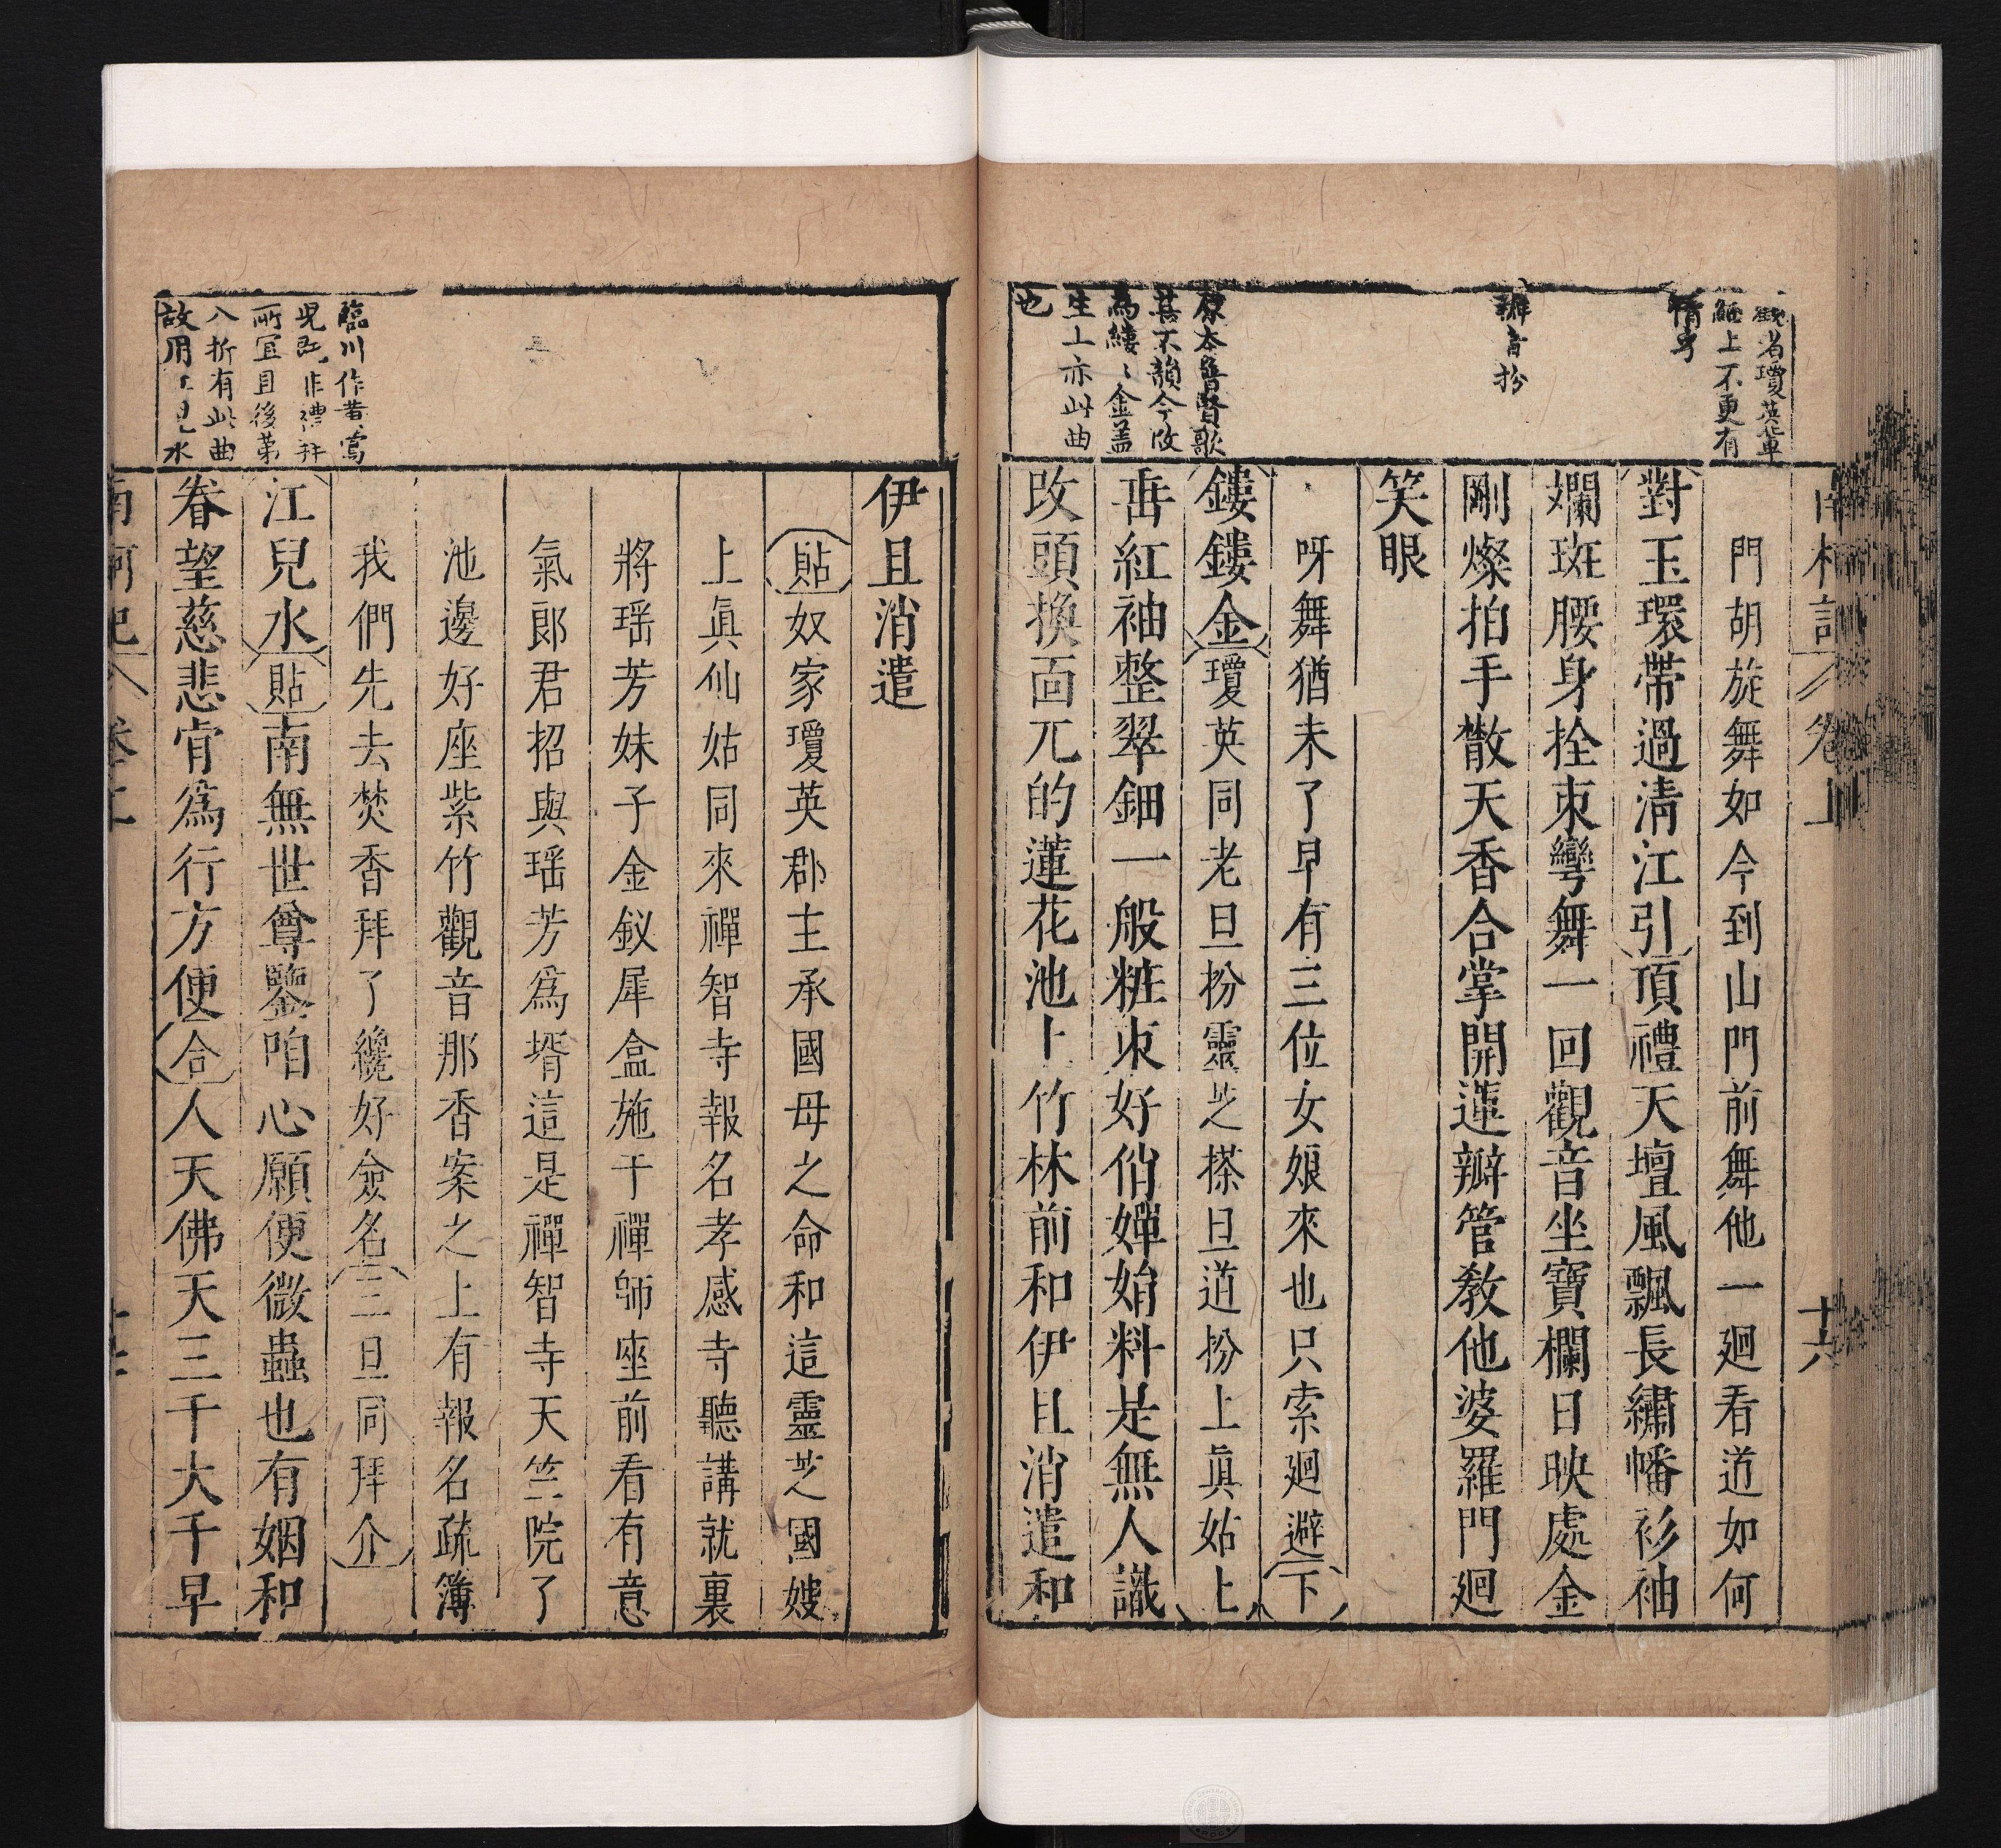 南柯記 卷上 十六
觀名瓊英輩
經上不更有
情字
辦音扮
原本魯賢歌
甚不韻今改
為縷〻金蓋
生上亦此曲
也
門胡旋舞如今到山門前舞他一廻看道如何
對玉環帶過清江引頂禮天壇風飄長繡幡衫袖
斕斑腰身拴束彎舞一回觀音坐寶欄日映處金
剛燦拍手散天香合掌開蓮瓣管教他婆羅門廻
笑眼
呀舞猶未了早有三位女娘來也只索廻避下
鏤鏤金瓊英同老旦扮靈芝搽旦道扮上眞姑上
垂紅袖整翠鈿一般粧束好俏嬋娟料是無人識
改頭換面兀的蓮花池上竹林前和伊且消遣和
伊且消遣
貼奴家瓊英郡主承國母之命和這靈芝國嫂
上眞仙姑同來禪智寺報名孝感寺聽講就裏
將瑶芳妹子金釵犀盒施于禪師座前看有意
氣郎君招與瑶芳爲壻這是禪智寺天竺院了
池邊好座紫竹觀音那香案之上有報名疏簿
我們先去焚香拜了纔好僉名三旦同拜介
江兒水貼南無世尊鑒咱心願便微蟲也有姻和
眷望慈悲肯爲行方便合人天佛天三千大千早
臨川作黃鶯
兒既非禮拜
所宜且後第
八折有此曲
故用江兒水
南柯記 卷上